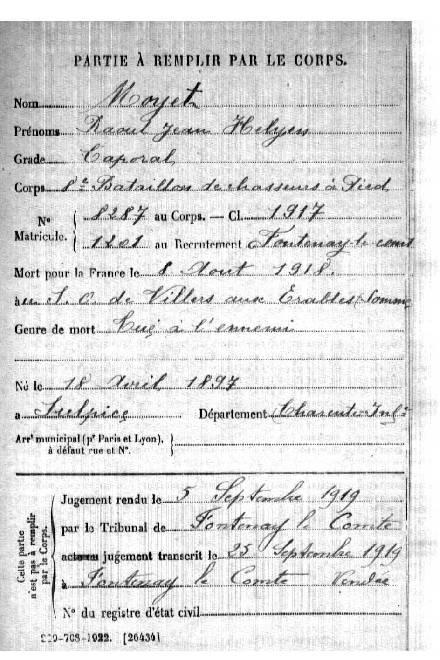 PARTIE À REMPLIR PAR LE CORPS.
Nom Moyet
Prénoms Raoul Jean
Grade Caporal
Corps 8e Bataillon de chasseurs à Pied
N° Matricule. 8287 au Corps. — Cl. 1917
1201 au Recrutement Fontenay-le-comt
Mort pour la France le 8 Aout 1918
à au S. O. de Villers aux Erables (Somme
Genre de mort Tué à l'ennemi
Né le 18 Avril 1897
a Sulpice Département Charente-Infre
Arrt municipal (pr Paris et Lyon),
à défaut rue et N°.
Cette partie
n'est pas à remplir
par le Corps.
Jugement rendu le 5 Septembre 1919
par le Tribunal de Fontenay le Comte
acte ou jugement transcrit le 25 Septembre 1919
à Fontenay le Comte Vendée
N° du registre d'état civil
-708-1922. [26434]